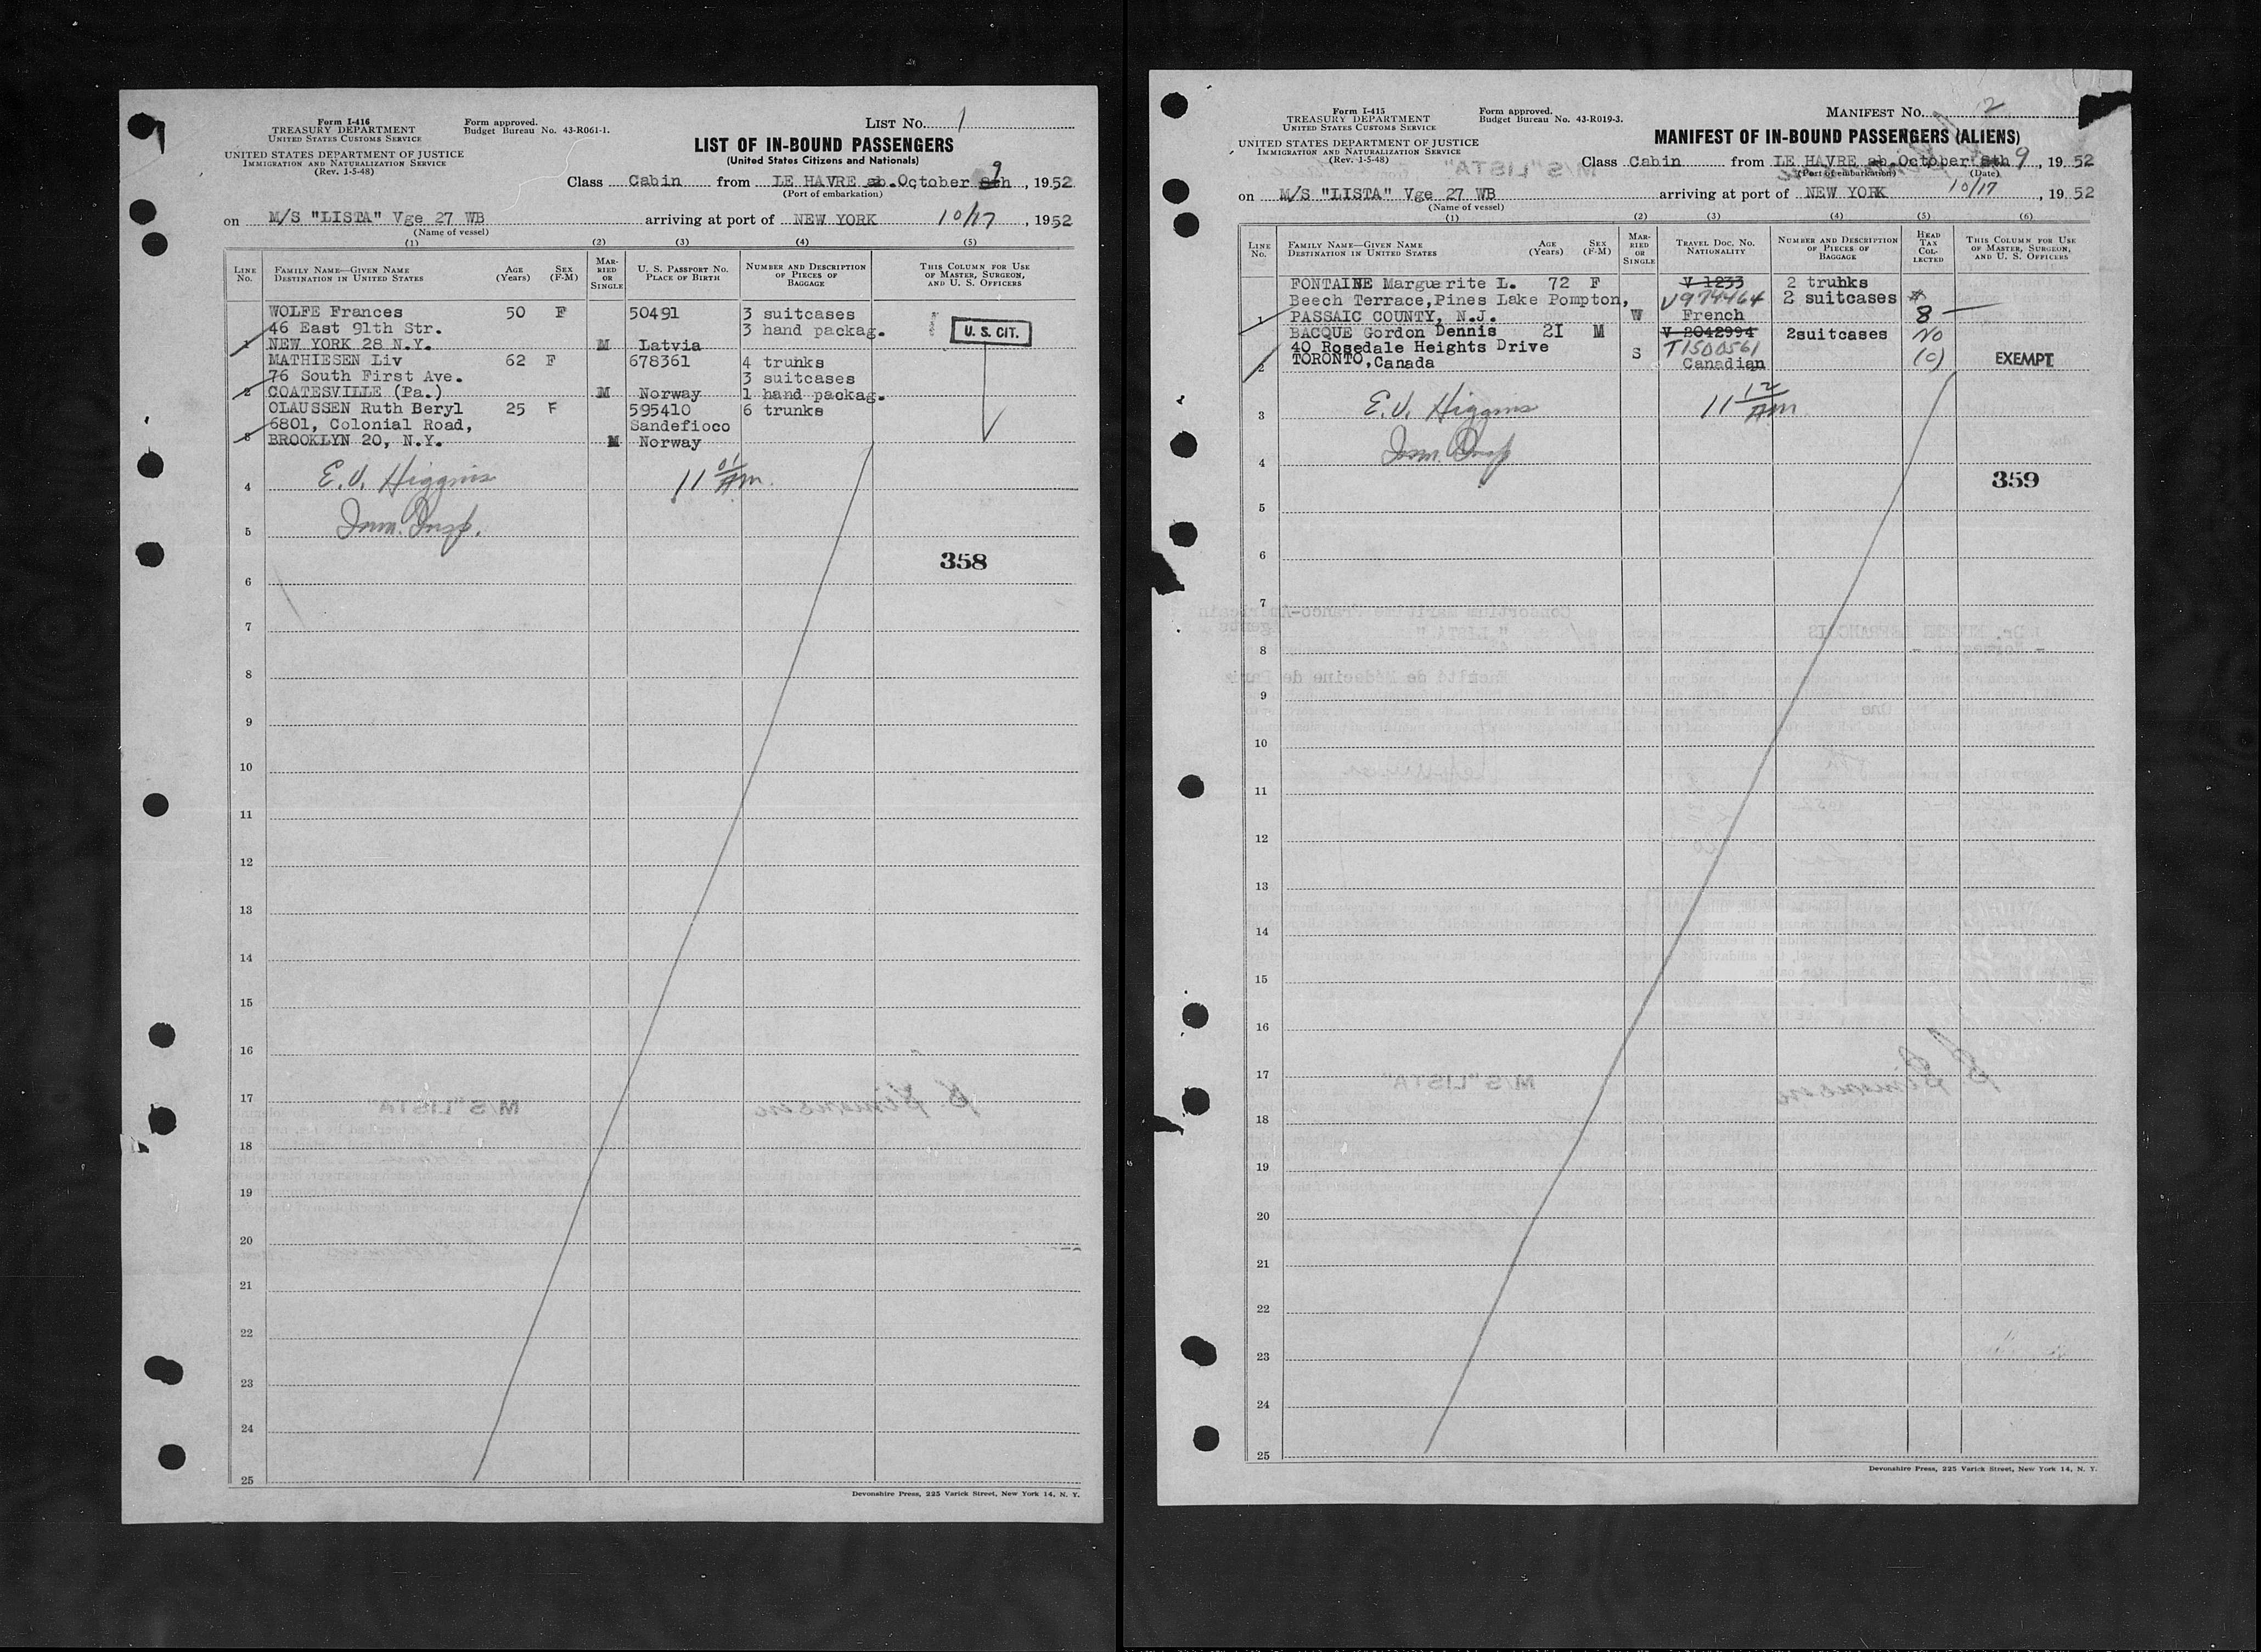 Form I-416
TREASURY DEPARTMENT
UNITED STATES CUSTOMS SERVICE
UNITED STATES DEPARTMENT OF JUSTICE
IMMIGRATION AND NATURALIZATION SERVICE
(Rev. 1-5-48)
Form approved.
Budget Bureau No. 43-R061-1.
LIST No. 1
LIST OF IN-BOUND PASSENGERS
(United States Citizens and Nationals)
Class Cabin from LE HAVRE ab. October 8th 9, 1952
(Port of embarkation)
on M/S "LISTA" Vge 27 WB arriving at port of NEW YORK 10/17, 1952
(Name of vessel)
(1) (2) (3) (4) (5)
LINE No. FAMILY NAME—GIVEN NAME DESTINATION IN UNITED STATES AGE (Years) SEX (F-M) MARRIED OR SINGLE U. S. PASSPORT No. PLACE OF BIRTH NUMBER AND DESCRIPTION OF PIECES OF BAGGAGE THIS COLUMN FOR USE OF MASTER, SURGEON, AND U. S. OFFICERS
WOLFE Frances 50 F 50491 3 suitcases
46 East 91th Str. 3 hand packag. U. S. CIT.
1 NEW YORK 28 N.Y. M Latvia
MATHIESEN Liv 62 F 678361 4 trunks
76 South First Ave. 3 suitcases
2 COATESVILLE (Pa.) M Norway 1 hand packag.
OLAUSSEN Ruth Beryl 25 F 595410 6 trunks
6801, Colonial Road, Sandefioco
3 BROOKLYN 20, N.Y. M Norway
4 E. V. Higgins 11 01 AM
5 Imm. Insp.
358
6
7
8
9
10
11
12
13
14
15
16
17
18
19
20
21
22
23
24
25
Devonshire Press, 225 Varick Street, New York 14, N. Y.
Form I-415
TREASURY DEPARTMENT
UNITED STATES CUSTOMS SERVICE
UNITED STATES DEPARTMENT OF JUSTICE
IMMIGRATION AND NATURALIZATION SERVICE
(Rev. 1-5-48)
Form approved.
Budget Bureau No. 43-R019-3.
MANIFEST No. 2
MANIFEST OF IN-BOUND PASSENGERS (ALIENS)
Class Cabin from LE HAVRE ab. October 8th 9, 1952
(Port of embarkation) (Date)
on M/S "LISTA" Vge 27 WB arriving at port of NEW YORK 10/17, 1952
(Name of vessel)
(1) (2) (3) (4) (5) (6)
LINE No. FAMILY NAME—GIVEN NAME DESTINATION IN UNITED STATES AGE (Years) SEX (F-M) MARRIED OR SINGLE TRAVEL DOC. No. NATIONALITY NUMBER AND DESCRIPTION OF PIECES OF BAGGAGE HEAD TAX COLLECTED THIS COLUMN FOR USE OF MASTER, SURGEON, AND U. S. OFFICERS
FONTAINE Marguerite L. 72 F V 1233 2 trunks
Beech Terrace, Pines Lake Pompton, V974464 2 suitcases $
1 PASSAIC COUNTY, N.J. W French 8 —
BACQUE Gordon Dennis 2I M V 2042994 2suitcases No
40 Rosedale Heights Drive S T1500561
2 TORONTO, Canada Canadian (C) EXEMPT
3 E. V. Higgins 11 12 AM
4 Imm. Insp
359
5
6
7
8
9
10
11
12
13
14
15
16
17
18
19
20
21
22
23
24
25
Devonshire Press, 225 Varick Street, New York 14, N. Y.